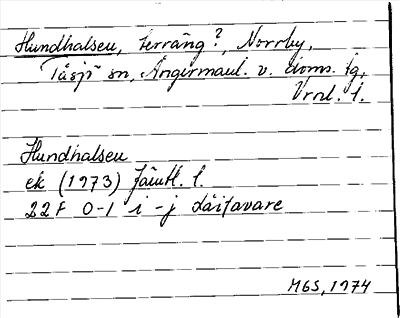 Hundhalsen, terräng?, Norrby,
Tåsjö sn, Ångermanl. v. doms. tg,
Vrnl. l.
Hundhalsen
ek (1973) Jämtl. l.
22F 0-1 i-j Däitavare
MGS, 1974